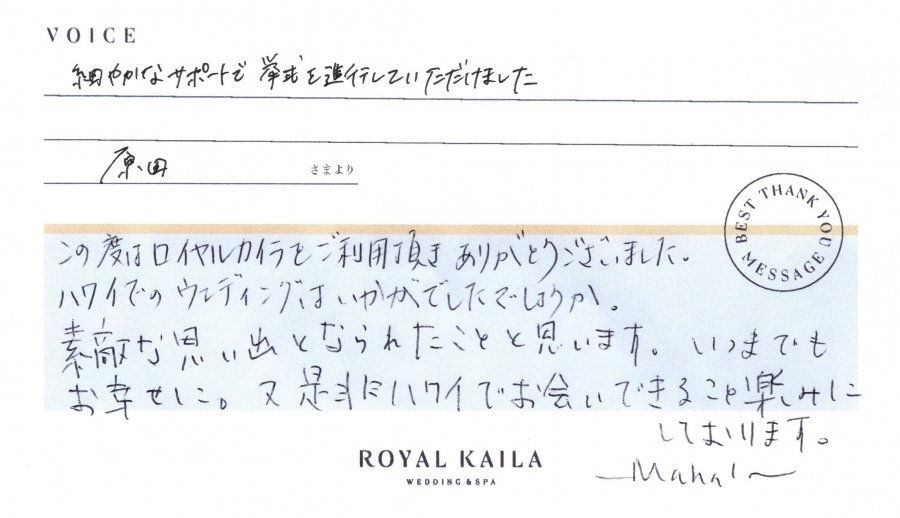 VOICE
細やかなサポートで挙式を進行していただけました
原田 さまより
BEST THANK YOU MESSAGE
この度はロイヤルカイラをご利用頂きありがとうございました。
ハワイでのウェディングはいかがでしたでしょうか。
素敵な思い出となられたことと思います。いつまでも
お幸せに。又是非ハワイでお会いできること楽しみに
しております。
ROYAL KAILA
WEDDING & SPA